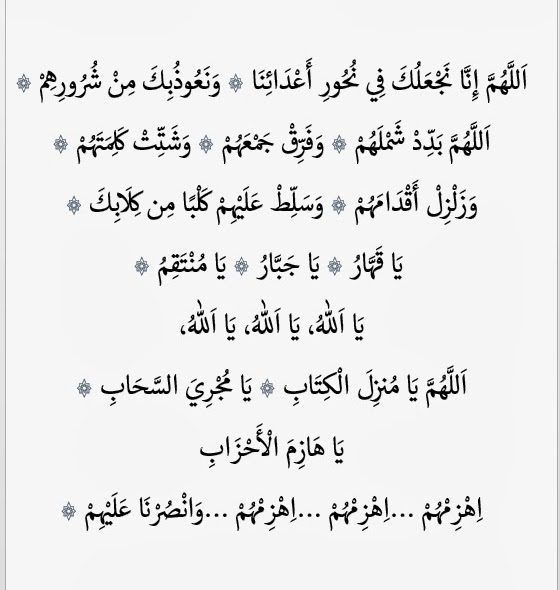 اَللَّهُمَّ إِنَّا نَجْعَلُكَ فِي نُحُورِ أَعْدَائِنَا ۞ وَنَعُوذُبِكَ مِنْ شُرُورِهِمْ ۞
اَللَّهُمَّ بَدِّدْ شَمْلَهُمْ ۞ وَفَرِّقْ جَمْعَهُمْ ۞ وَشَتِّتْ كَلِمَتَهُمْ ۞
وَزَلْزِلْ أَقْدَامَهُمْ ۞ وَسَلِّطْ عَلَيْهِمْ كَلْبًا مِن كِلَابِكَ ۞
يَا قَهَّارُ ۞ يَا جَبَّارُ ۞ يَا مُنْتَقِمُ ۞
يَا اَللهُ، يَا اَللهُ، يَا اَللهُ،
اَللَّهُمَّ يَا مُنزِلَ الْكِتَابِ ۞ يَا مُجْرِيَ السَّحَابِ ۞
يَا هَازِمَ الْأَحْزَابِ
اِهْزِمْهُمْ ...اِهْزِمْهُمْ ...اِهْزِمْهُمْ ...وَانْصُرْنَا عَلَيْهِمْ ۞